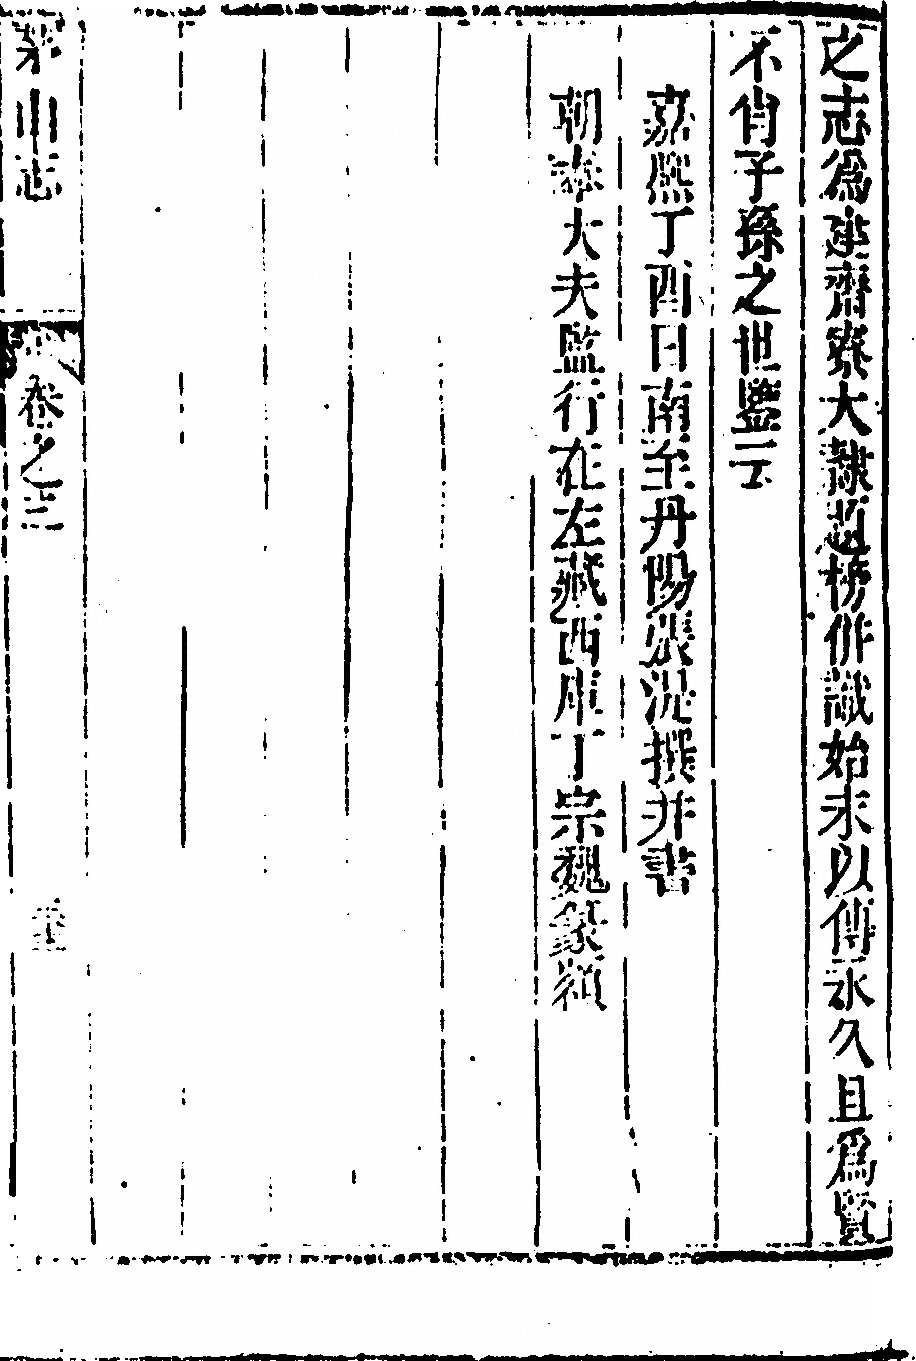 之志爲建齋寮大隷題榜併識始末以傳永久且爲賢
不肖子孫之世鑒云
嘉熙丁酉日南至丹陽張湜撰并書
朝奉大夫監行在左藏西庫丁宗魏篆額
茅山志
卷之三